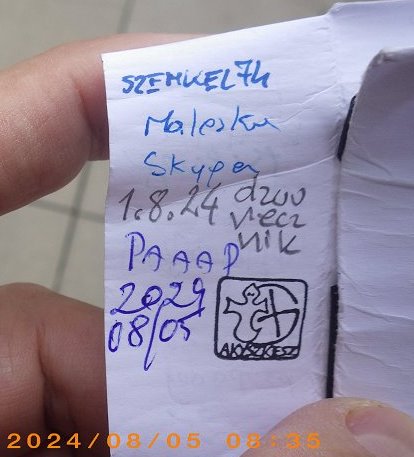 SZEMKEL74
Maleska
Skypa
1.8.24 dzwo
niecz
nik
PAAAP
2024
08/05
AKYSZKIESZ
2024/08/05 08:35